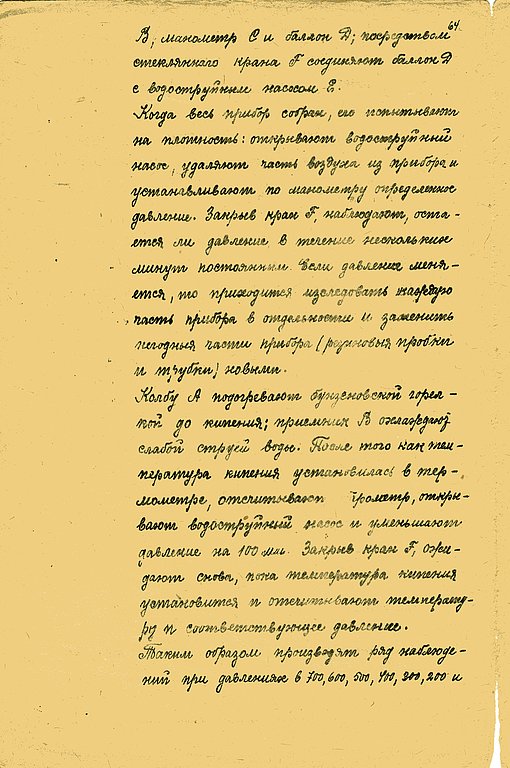 64
В; манометр С и баллон D; посредством
стеклянного крана F соединяют баллон D
с водоструйным насосом E.
Когда весь прибор собран, его испытывают
на плотность: открывают водоструйный
насос, удаляют часть воздуха из прибора и
устанавливают по манометру определенное
давление. Закрыв кран F, наблюдают, оста-
ется ли давление в течение нескольких
минут постоянным. Если давление меня-
ется, то приходится изследовать каждую
часть прибора в отдельности и заменить
негодныя части прибора (резиновыя пробки
и трубки) новыми.
Колбу А подогревают бунзеновской горел-
кой до кипения; приемник В охлаждают
слабой струей воды. После того как тем-
пература кипения установилась в тер-
мометре, отсчитывают рометр, откры-
вают водоструйный насос и уменьшают
давление на 100 мм. Закрыв кран F, ожи-
дают снова, пока температура кипения
установится и отсчитывают температу-
ру и соответствующее давление.
Таким образом производят ряд наблюде-
ний при давлениях в 700, 600, 500, 400, 300, 200 и